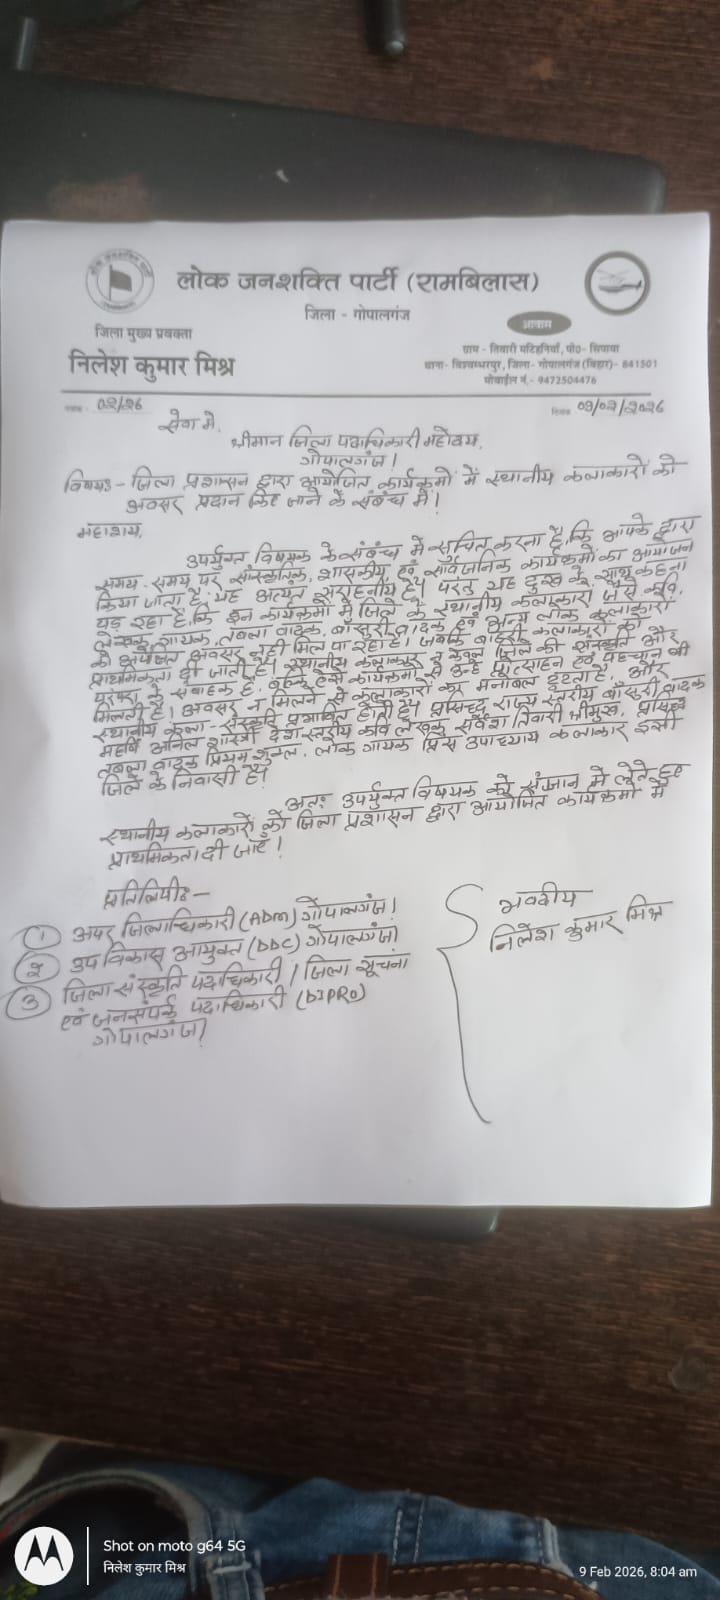 लोक जनशक्ति पार्टी (रामबिलास)
जिला - गोपालगंज
आवास
जिला मुख्य प्रवक्ता
निलेश कुमार मिश्र
ग्राम - तिवारी मटिहनियाँ, पो०- सिपाया
थाना- विश्वम्भरपुर, जिला- गोपालगंज (बिहार)- 841501
मोबाईल नं.- 9472504476
02/26
दिनांक 09/02/2026
सेवा में,
श्रीमान जिला पदाधिकारी महोदय,
गोपालगंज।
विषयः- जिला प्रशासन द्वारा आयोजित कार्यक्रमों में स्थानीय कलाकारों को
अवसर प्रदान किए जाने के संबंध में।
महाशय,
उपर्युक्त विषयक के संबंध में सूचित करना है, कि आपके द्वारा
समय-समय पर सांस्कृतिक, शासकीय एवं सार्वजनिक कार्यक्रमों का आयोजन
किया जाता है। यह अत्यंत सराहनीय है। परंतु यह दुःख के साथ कहना
पड़ रहा है, कि इन कार्यक्रमों में जिले के स्थानीय कलाकारों जैसे कवि,
लेखक, गायक, तबला वादक, बाँसुरी वादक एवं अन्य लोक कलाकारों
को अपेक्षित अवसर नहीं मिल पा रहा है। जबकि बाहरी कलाकारों को
प्राथमिकता दी जाती है। स्थानीय कलाकार न केवल जिले की संस्कृति और
परंपरा के संवाहक है, बल्कि ऐसे कार्यक्रमों से उन्हें प्रोत्साहन एवं पहचान भी
मिलती है। अवसर न मिलने से कलाकारों का मनोबल टूटता है, और
स्थानीय कला-संस्कृति प्रभावित होती है। प्रसिद्ध राज्य स्तरीय बाँसुरी वादक
महर्षि अनिल शास्त्री देश स्तरीय कवि लेखक सर्वेश तिवारी श्रीमुख, प्रसिद्ध
तबला वादक प्रियम शुक्ल, लोक गायक प्रिंस उपाध्याय कलाकार इसी
जिले के निवासी है।
अतः उपर्युक्त विषयक को संज्ञान में लेते हुए
स्थानीय कलाकारों को जिला प्रशासन द्वारा आयोजित कार्यक्रमों में
प्राथमिकता दी जाएं।
प्रतिलिपीः-
① अपर जिलाधिकारी (ADM) गोपालगंज।
② उप विकास आयुक्त (DDC) गोपालगंज।
③ जिला संस्कृति पदाधिकारी / जिला सूचना
एवं जनसंपर्क पदाधिकारी (DIPRO)
गोपालगंज।
भवदीय
निलेश कुमार मिश्र
Shot on moto g64 5G
निलेश कुमार मिश्र
9 Feb 2026, 8:04 am